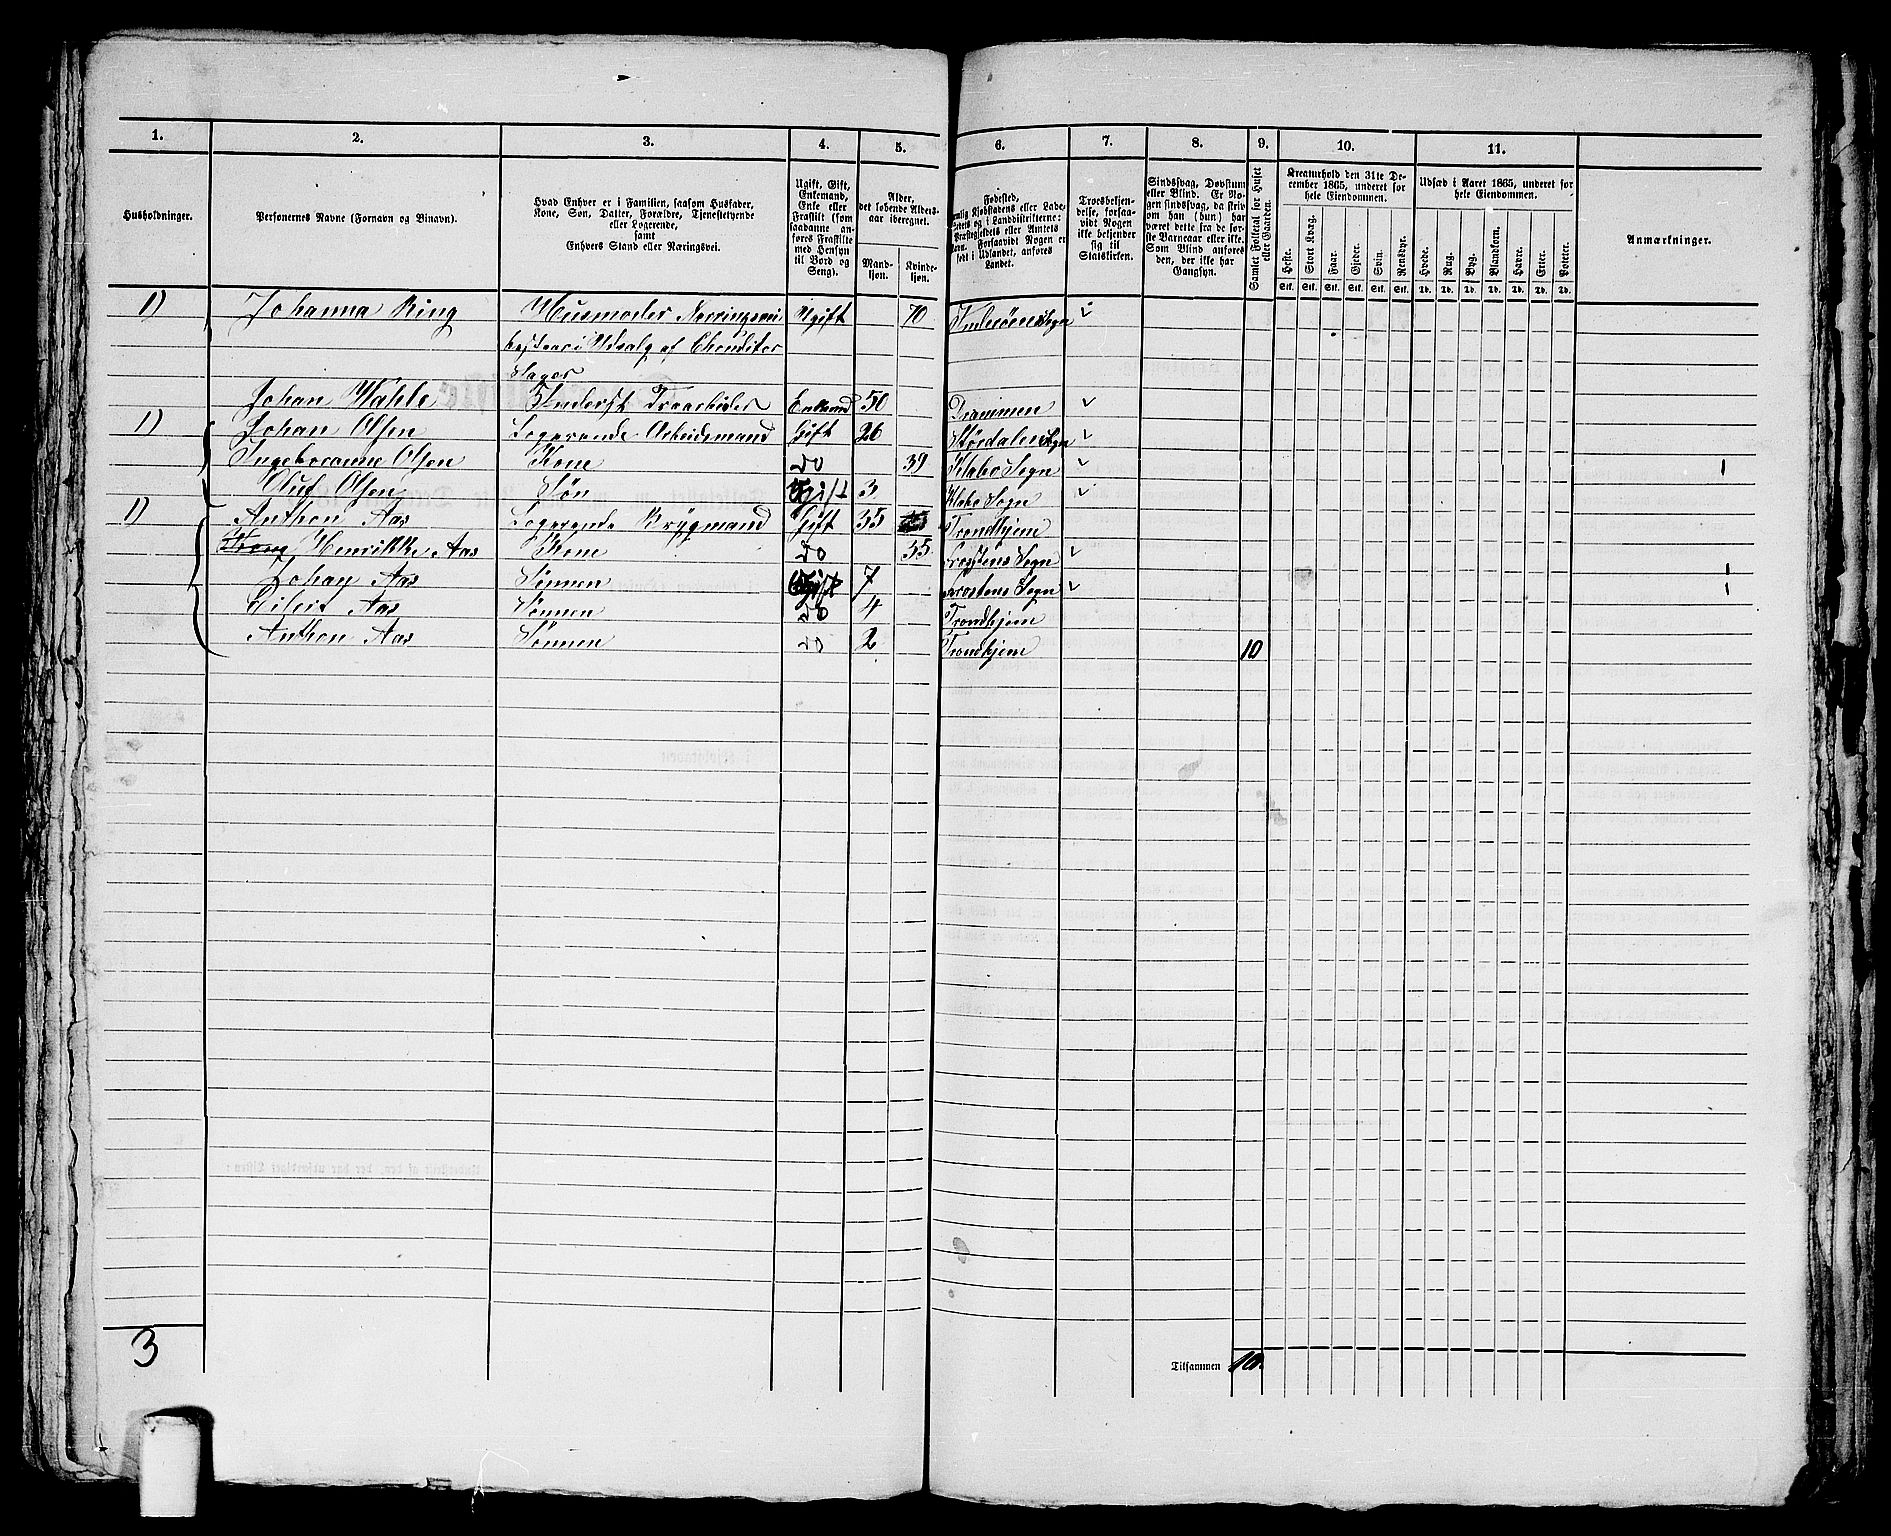 1. 2. 3. 4. 5. 6. 7. 8. 9. 10. 11.
Husholdninger.
Personernes Navne (Fornavn og Binavn).
Hvad Enhver er i Familien, saasom Husfader,
Kone, Søn, Datter, Forældre, Tjenestetyende
eller Logerende,
samt
Enhvers Stand eller Næringsvei.
Ugift, Gift,
Enkemand,
Enke eller
Fraskilt (som
saadanne an-
føres Fraskilte
med Hensyn
til Bord og
Seng).
Alder,
det løbende Alders-
aar iberegnet.
Mand-
kjøn.
Kvinde-
kjøn.
Fødested,
nemlig Kjøbstadens eller Lade-
stedets og i Landdistrikterne:
Præstegjeldets eller Amtets
Navn. Forsaavidt Nogen er
født i Udlandet, anføres
Landet.
Troesbekjen-
delse, forsaa-
vidt Nogen
ikke bekjender
sig til
Statskirken.
Sindssvag, Døvstum
eller Blind. Er No-
gen sindssvag, da skriv
om han (hun) har
været dette fra de før-
ste Barneaar eller ikke.
Som Blind anføres
den, der ikke har
Gangsyn.
Samlet Folketal for Huset
eller Gaarden.
Kreaturhold den 31te De-
cember 1865, underet for
hele Eiendommen.
Heste. Stort Kvæg. Faar. Gjeder. Svin. Rensdyr.
Stk. Stk. Stk. Stk. Stk. Stk.
Udsæd i Aaret 1865, underet for
hele Eiendommen.
Hvede. Rug. Byg. Blandkorn. Havre. Erter. Poteter.
Td. Td. Td. Td. Td. Td. Td.
Anmærkninger.
1) Johanna Ring Husmoder Næringsvei Ugift 70
bestaar i Udsalg af Chonditor
Sager
Johan Wahle Inderst Træarbeider Enkemd 50 Drammen
1) Johan Olsen Logerende Arbeidsmand Gift 26 Størdalens Sogn
Ingeborganne Olsen Kone do 39 Klæbo Sogn 1
Oluf Olsen Søn Ugift 3 Klæbo Sogn
1) Anthon Aas Logerende Brygmand Gift 35 Trondhjem
Henrikke Aas Kone do 35 Frostens Sogn
Johan Aas Sønnen Ugift 7 Frostens Sogn 1
Aas Sønnen do 4 Trondhjem
Anthon Aas Sønnen do 2 Trondhjem 10
3
Tilsammen 10.